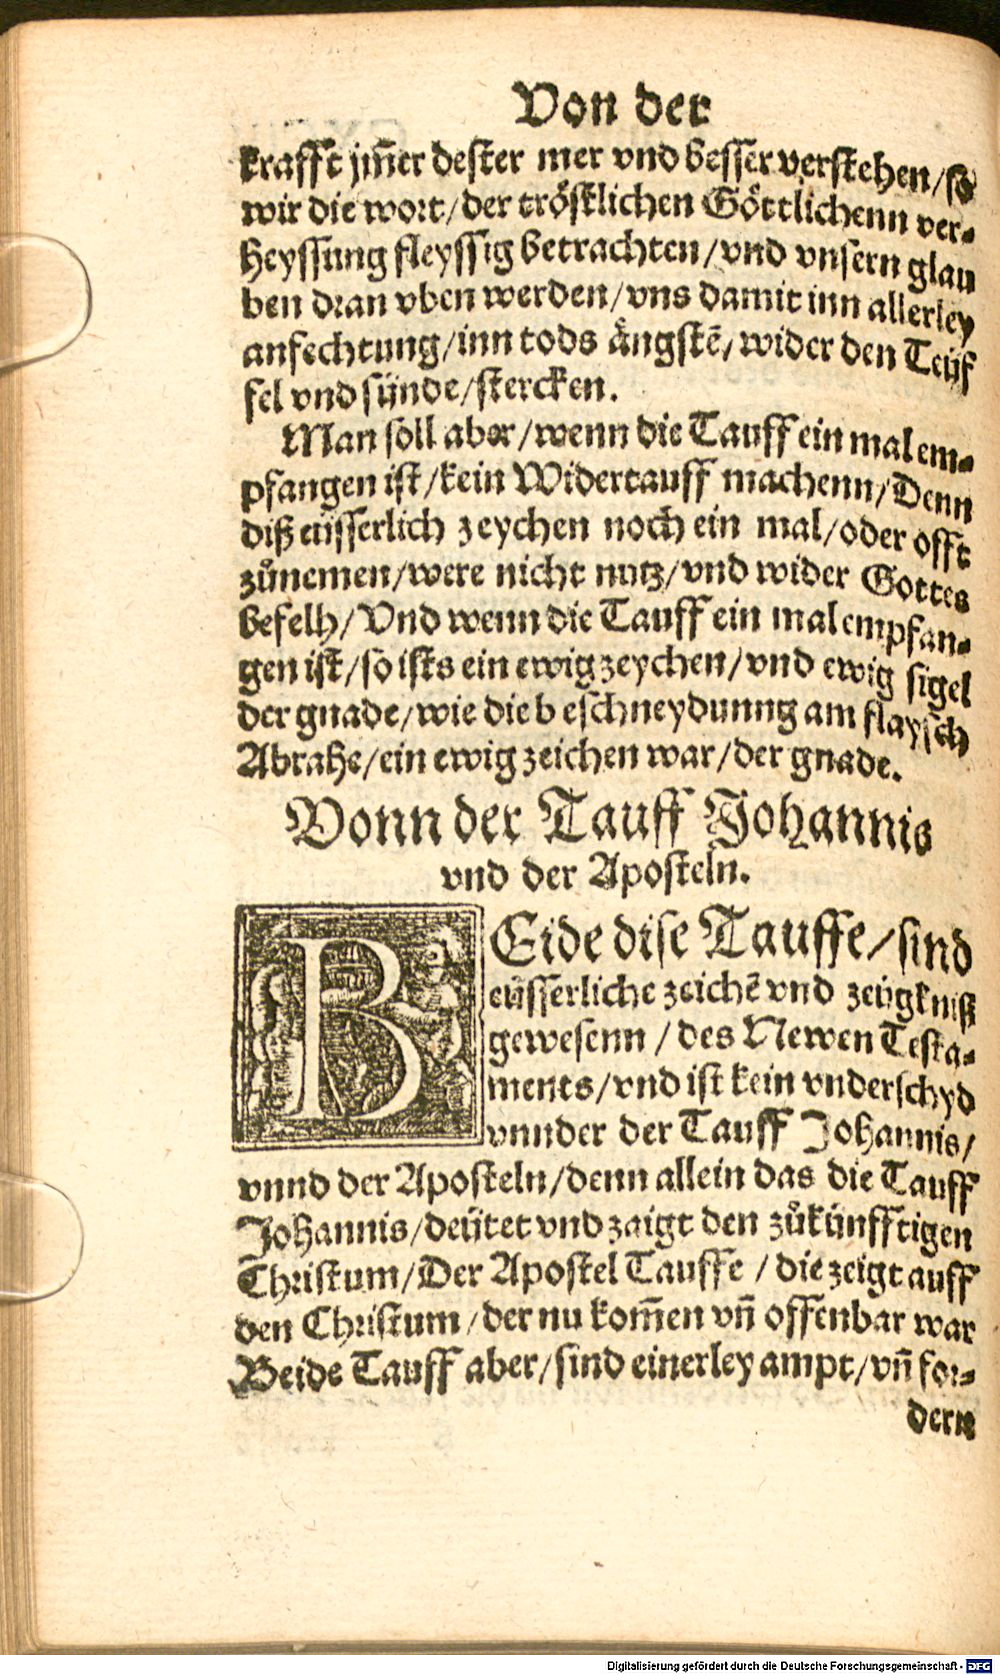 Von der
krafft jm̃er dester mer vnd besser verstehen/so
wir die wort/der tröstlichen Göttlichenn ver-
heyssung fleyssig betrachten/vnd vnsern glau
ben dran vben werden/vns damit inn allerley
anfechtung/inn tods ängstẽ/wider den Teüf
fel vnd sünde/stercken.
Man soll aber/wenn die Tauff ein mal em-
pfangen ist/kein Widertauff machenn/Denn
diß eüsserlich zeychen noch ein mal/oder offt
zůnemen/were nicht nutz/vnd wider Gottes
befelh/Vnd wenn die Tauff ein mal empfan-
gen ist/so ists ein ewig zeychen/vnd ewig sigel
der gnade/wie die b eschneydunng am flaysch
Abrahe/ein ewig zeichen war/der gnade.
Vonn der Tauff Johannis
vnd der Aposteln.
BEide dise Tauffe/sind
eüsserliche zeichẽ vnd zeügkniß
gewesenn/des Newen Testa-
ments/vnd ist kein vnderschyd
vnnder der Tauff Johannis/
vnnd der Aposteln/denn allein das die Tauff
Johannis/deütet vnd zaigt den zůkünfftigen
Christum/Der Apostel Tauffe/die zeigt auff
den Christum/der nu kom̃en vñ offenbar war
Beide Tauff aber/sind einerley ampt/vñ for-
dern
Digitalisierung gefördert durch die Deutsche Forschungsgemeinschaft - DFG